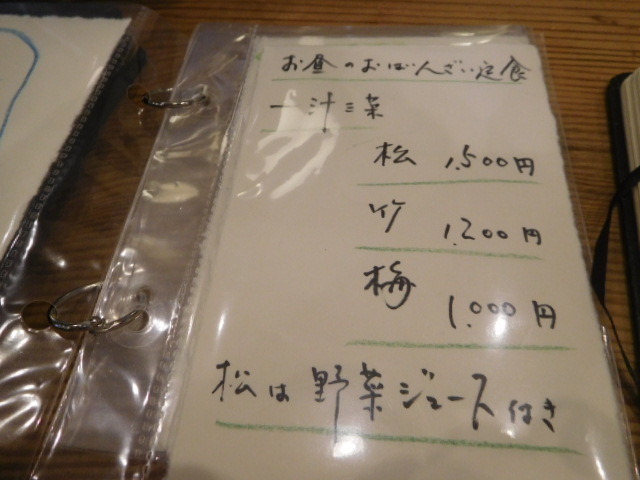 お昼のおばんざい定食
一汁三菜
松 1,500円
竹 1,200円
梅 1,000円
松は野菜ジュース付き